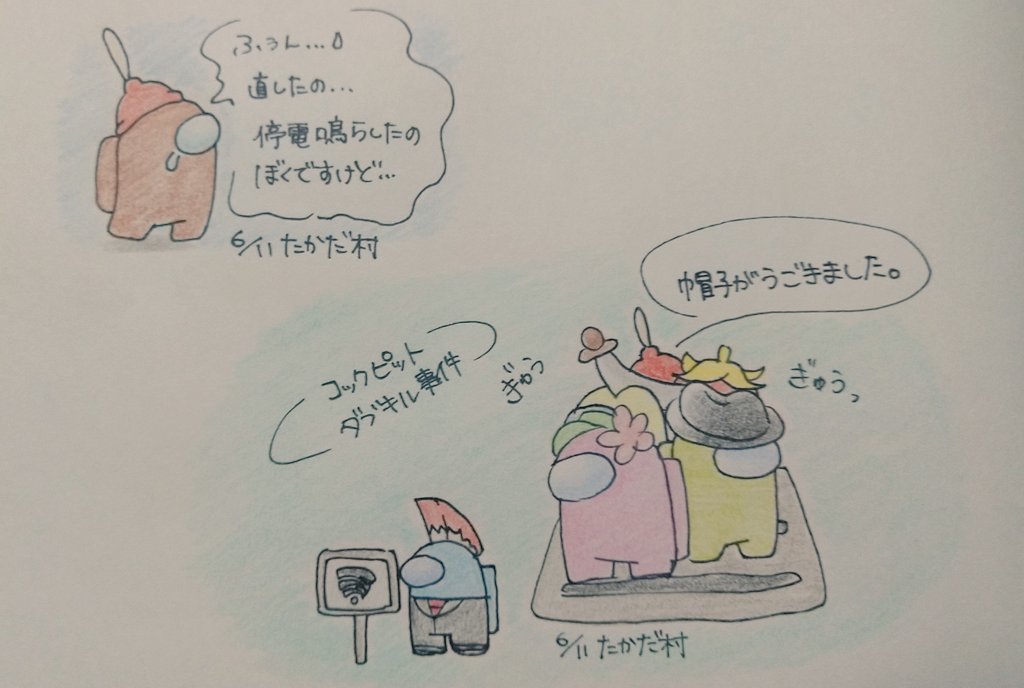 ふぅん…
直したの…
停電鳴らしたの
ぼくですけど…
6/11 たかだ村
帽子がうごきました。
コックピット
ダブルキル事件
ぎゅう
ぎゅうっ
6/11 たかだ村